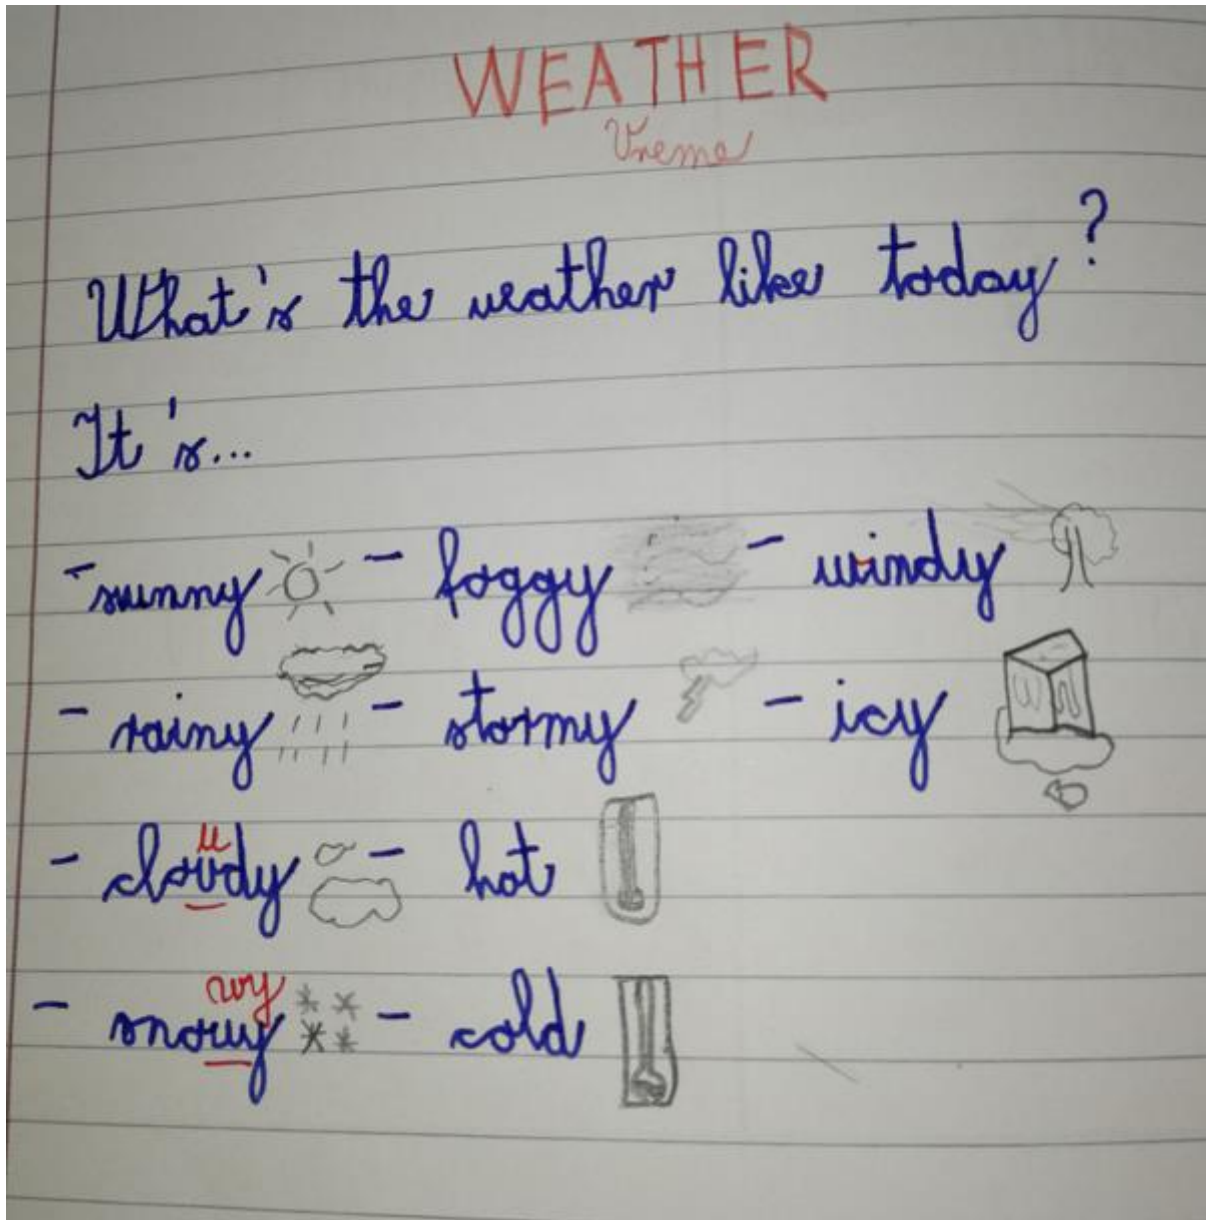 WEATHER
Vreme
What's the weather like today?
It's...
- sunny - foggy - windy
- rainy - stormy - icy
u
- clovdy - hot
wy
- snowy - cold